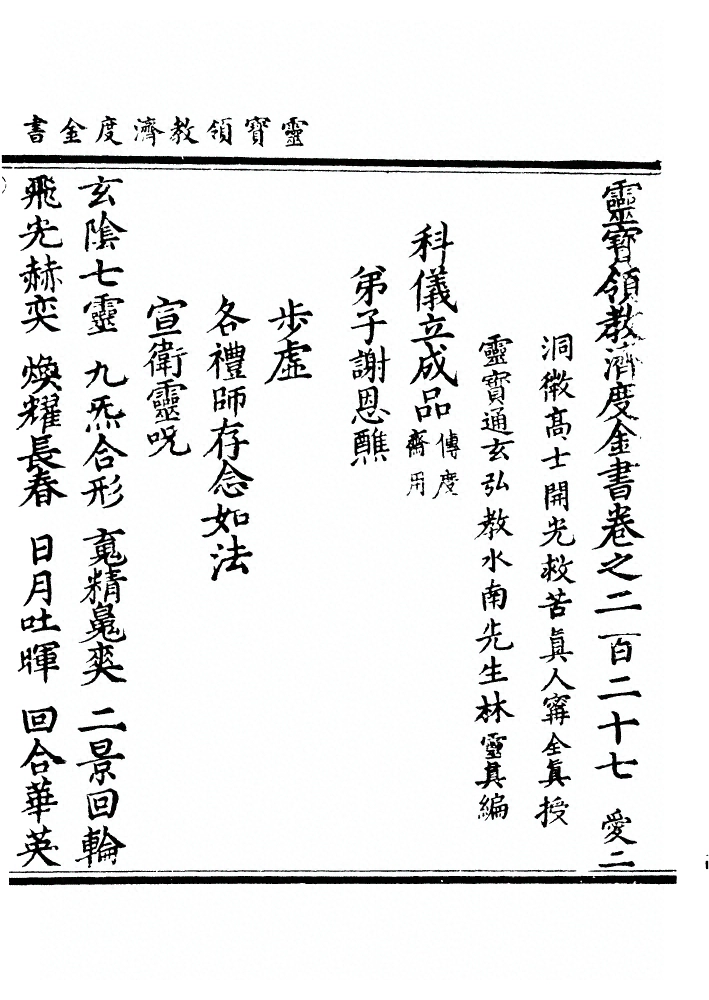 靈寶領教濟度金書
靈寶領教濟度金書卷之二百二十七 愛二
洞微高士開光救苦眞人甯全眞授
靈寶通玄弘教水南先生林靈眞編
科儀立成品 傳度齋用
弟子謝恩醮
步虛
各禮師存念如法
宣衛靈呪
玄陰七靈 九炁合形 䰟精鬽爽 二景回輪
飛光赫奕 煥耀長春 日月吐暉 回合華英